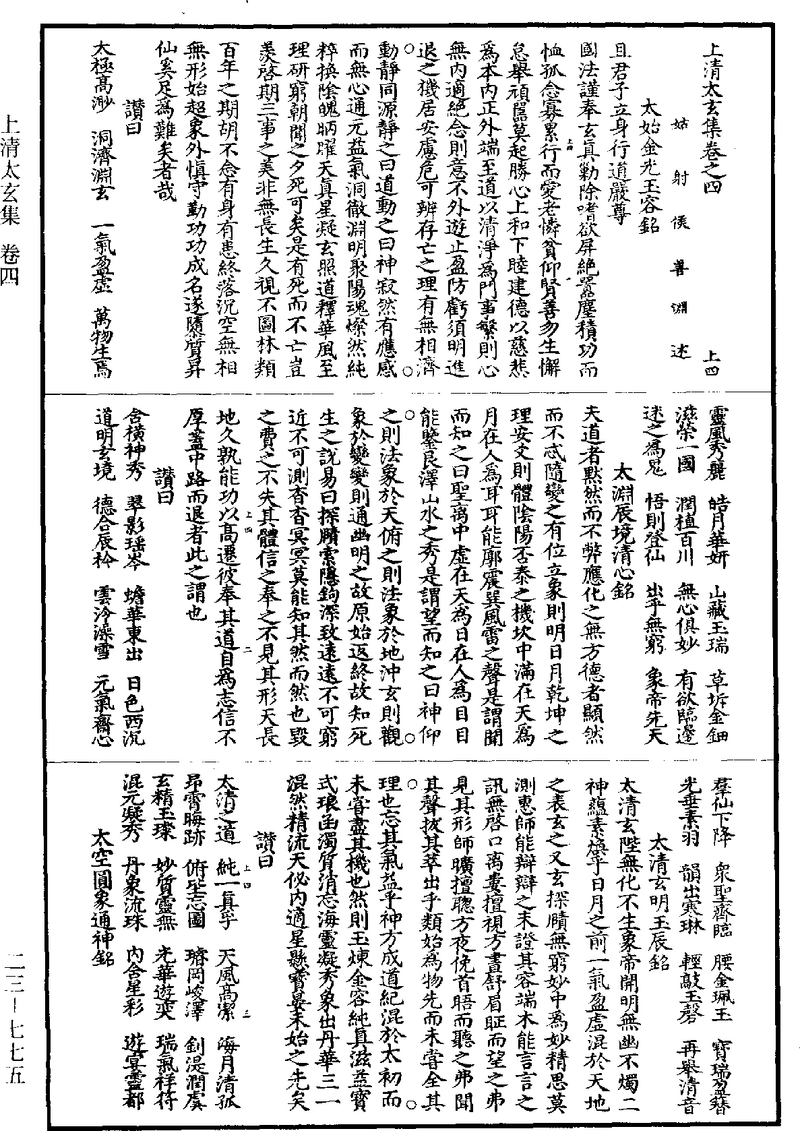 上清太玄集卷之四
上四
姑射侯善淵述
太始金光玉容銘
且君子立身行道嚴尊
國法謹奉玄真勤除嗜欲屏絕囂塵積功而
恤孤念寡累行而愛老憐貧仰賢善勿生懈
怠舉頑嚚莫起勝心上和下睦建德以慈悲
為本內正外端至道以清淨為門事繁則心
無內適絕念則意不外遊止盈防虧須明進
退之機居安慮危可辨存亡之理有無相濟
動靜同源靜之曰道動之曰神寂然有應感
而無心通元益氣洞徹淵明聚陽魂燦然純
粹換陰魄昞曜天真星凝玄照道釋華風至
理研窮朝聞之夕死可矣是有死而不亡豈
羨啓期三事之美非無長生久視不圖林類
百年之期胡不念有身有患終落沉空無相
無形始超象外慎守勤功功成名遂隨質昇
仙奚足為難矣者哉
讚曰
太極高渺　洞濟淵玄　一氣盈虛　萬物生焉
靈風秀麗　皓月華妍　山藏玉瑞　草坼金鈿
滋榮一國　潤植百川　無心俱妙　有欲臨邊
迷之為鬼　悟則登仙　出乎無窮　象帝先天
太淵辰境清心銘
夫道者默然而不弊應化之無方德者顯然
而不忒隨變之有位立象則明日月乾坤之
理安爻則體陰陽否泰之機坎中滿在天為
月在人為耳耳能廓震巽風雷之聲是謂聞
而知之曰聖离中虛在天為日在人為目目
能鑒艮澤山水之秀是謂望而知之曰神仰
之則法象於天俯之則法象於地沖玄則觀
象於變變則通幽明之故原始返終故知死
生之說易曰探賾索隱鉤深致遠遠不可窮
近不可測杳杳冥冥莫能知其然而然也毀
之費之不失其體信之奉之不見其形天長
地久孰能功以高遷彼奉其道自為志信不
厚蓋中路而退者此之謂也
讚曰
含橫神秀　翠影瑤岑　蟾華東出　日色西沉
道明玄境　德合辰衿　雲泠澡雪　元氣齋心
羣仙下降　衆聖齊臨　腰金珮玉　寶瑞盈簪
光垂素羽　韻出寒琳　輕敲玉磬　再舉清音
太清玄明玉辰銘
太清玄陛無化不生象帝開明無幽不燭二
神蘊素煥乎日月之前一氣盈虛混於天地
之表玄之又玄探賾無窮妙中為妙精思莫
測惠師能辯辯之未證其容端木能言言之
訊無啓口离婁擅視方晝舒眉眐而望之弗
見其形師曠擅聰方夜俛首晤而聽之弗聞
其聲拔其萃出乎類始為物先而未嘗全其
理也忘其氣益乎神方成道紀混於太初而
未嘗盡其機也然則玉煉金容純真滋益寶
式琅函濁質消忘海靈凝秀象出丹華三一
混然精流天伭內適星懸寶晏未始之先矣
讚曰
太清之道　純一真乎　天風高潔　海月清孤
昂霄晦跡　俯聖忘圖　瑭岡峻澤　釗湜潤虞
玄精玉璨　妙質靈無　光華遊奕　瑞氣祥符
混元凝秀　丹象流珠　內含星彩　遊宴靈都
太空圓象通神銘
上清太玄集　卷四
二三—七七五